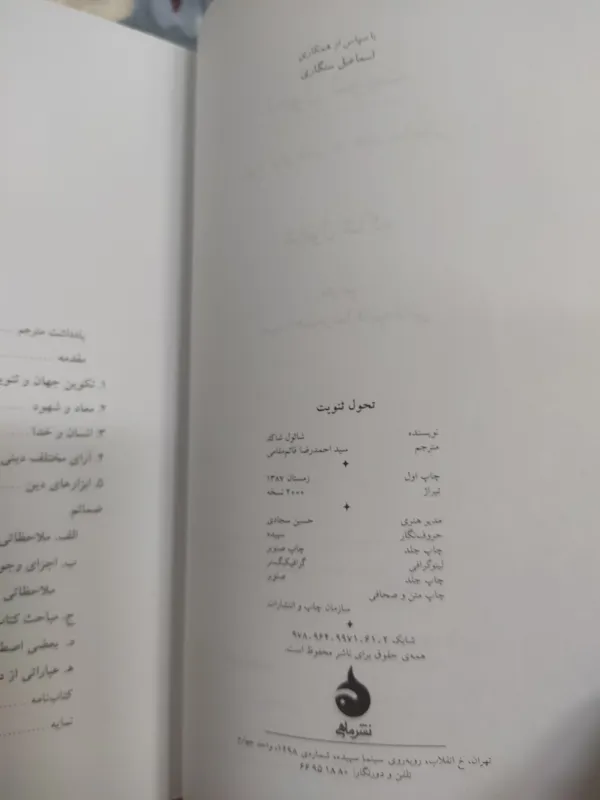 با سپاس از همکاری
اسماعیل سنگاری
تحول ثنویت
نویسنده شائول شاکد
مترجم سید احمدرضا قائم‌مقامی
چاپ اول زمستان ۱۳۸۷
تیراژ ۲۰۰۰ نسخه
مدیر هنری حسین سجادی
حروف‌نگار سپیده
چاپ جلد چاپ صنوبر
لیتوگرافی گرافیک‌گستر
چاپ جلد صنوبر
چاپ متن و صحافی سازمان چاپ و انتشارات
شابک ۹۷۸.۹۶۴.۹۹۷۱.۶۱.۲
همه‌ی حقوق برای ناشر محفوظ است.
نشر ماهی
تهران، خ انقلاب، روبه‌روی سینما سپیده، شماره‌ی ۱۴۹۸، واحد چهار
تلفن و دورنگار: ۶۶ ۹۵ ۱۸ ۸۰
یادداشت مترجم
مقدمه
۱. تکوین جهان و ثنوی
۲. معاد و شهود
۳. انسان و خدا
۴. آرای مختلف دینی
۵. ابزارهای دین
ضمائم
الف. ملاحظاتی
ب. اجزای وجو
ملاحظاتی
ج. مباحث کتاب
د. بعضی اصط
ه. عباراتی از د
کتاب‌نامه
نمایه